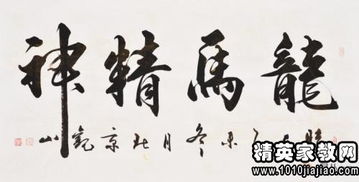 龍馬精神
冬月北京觀山
精英家教网
www.1010jiajiao.com